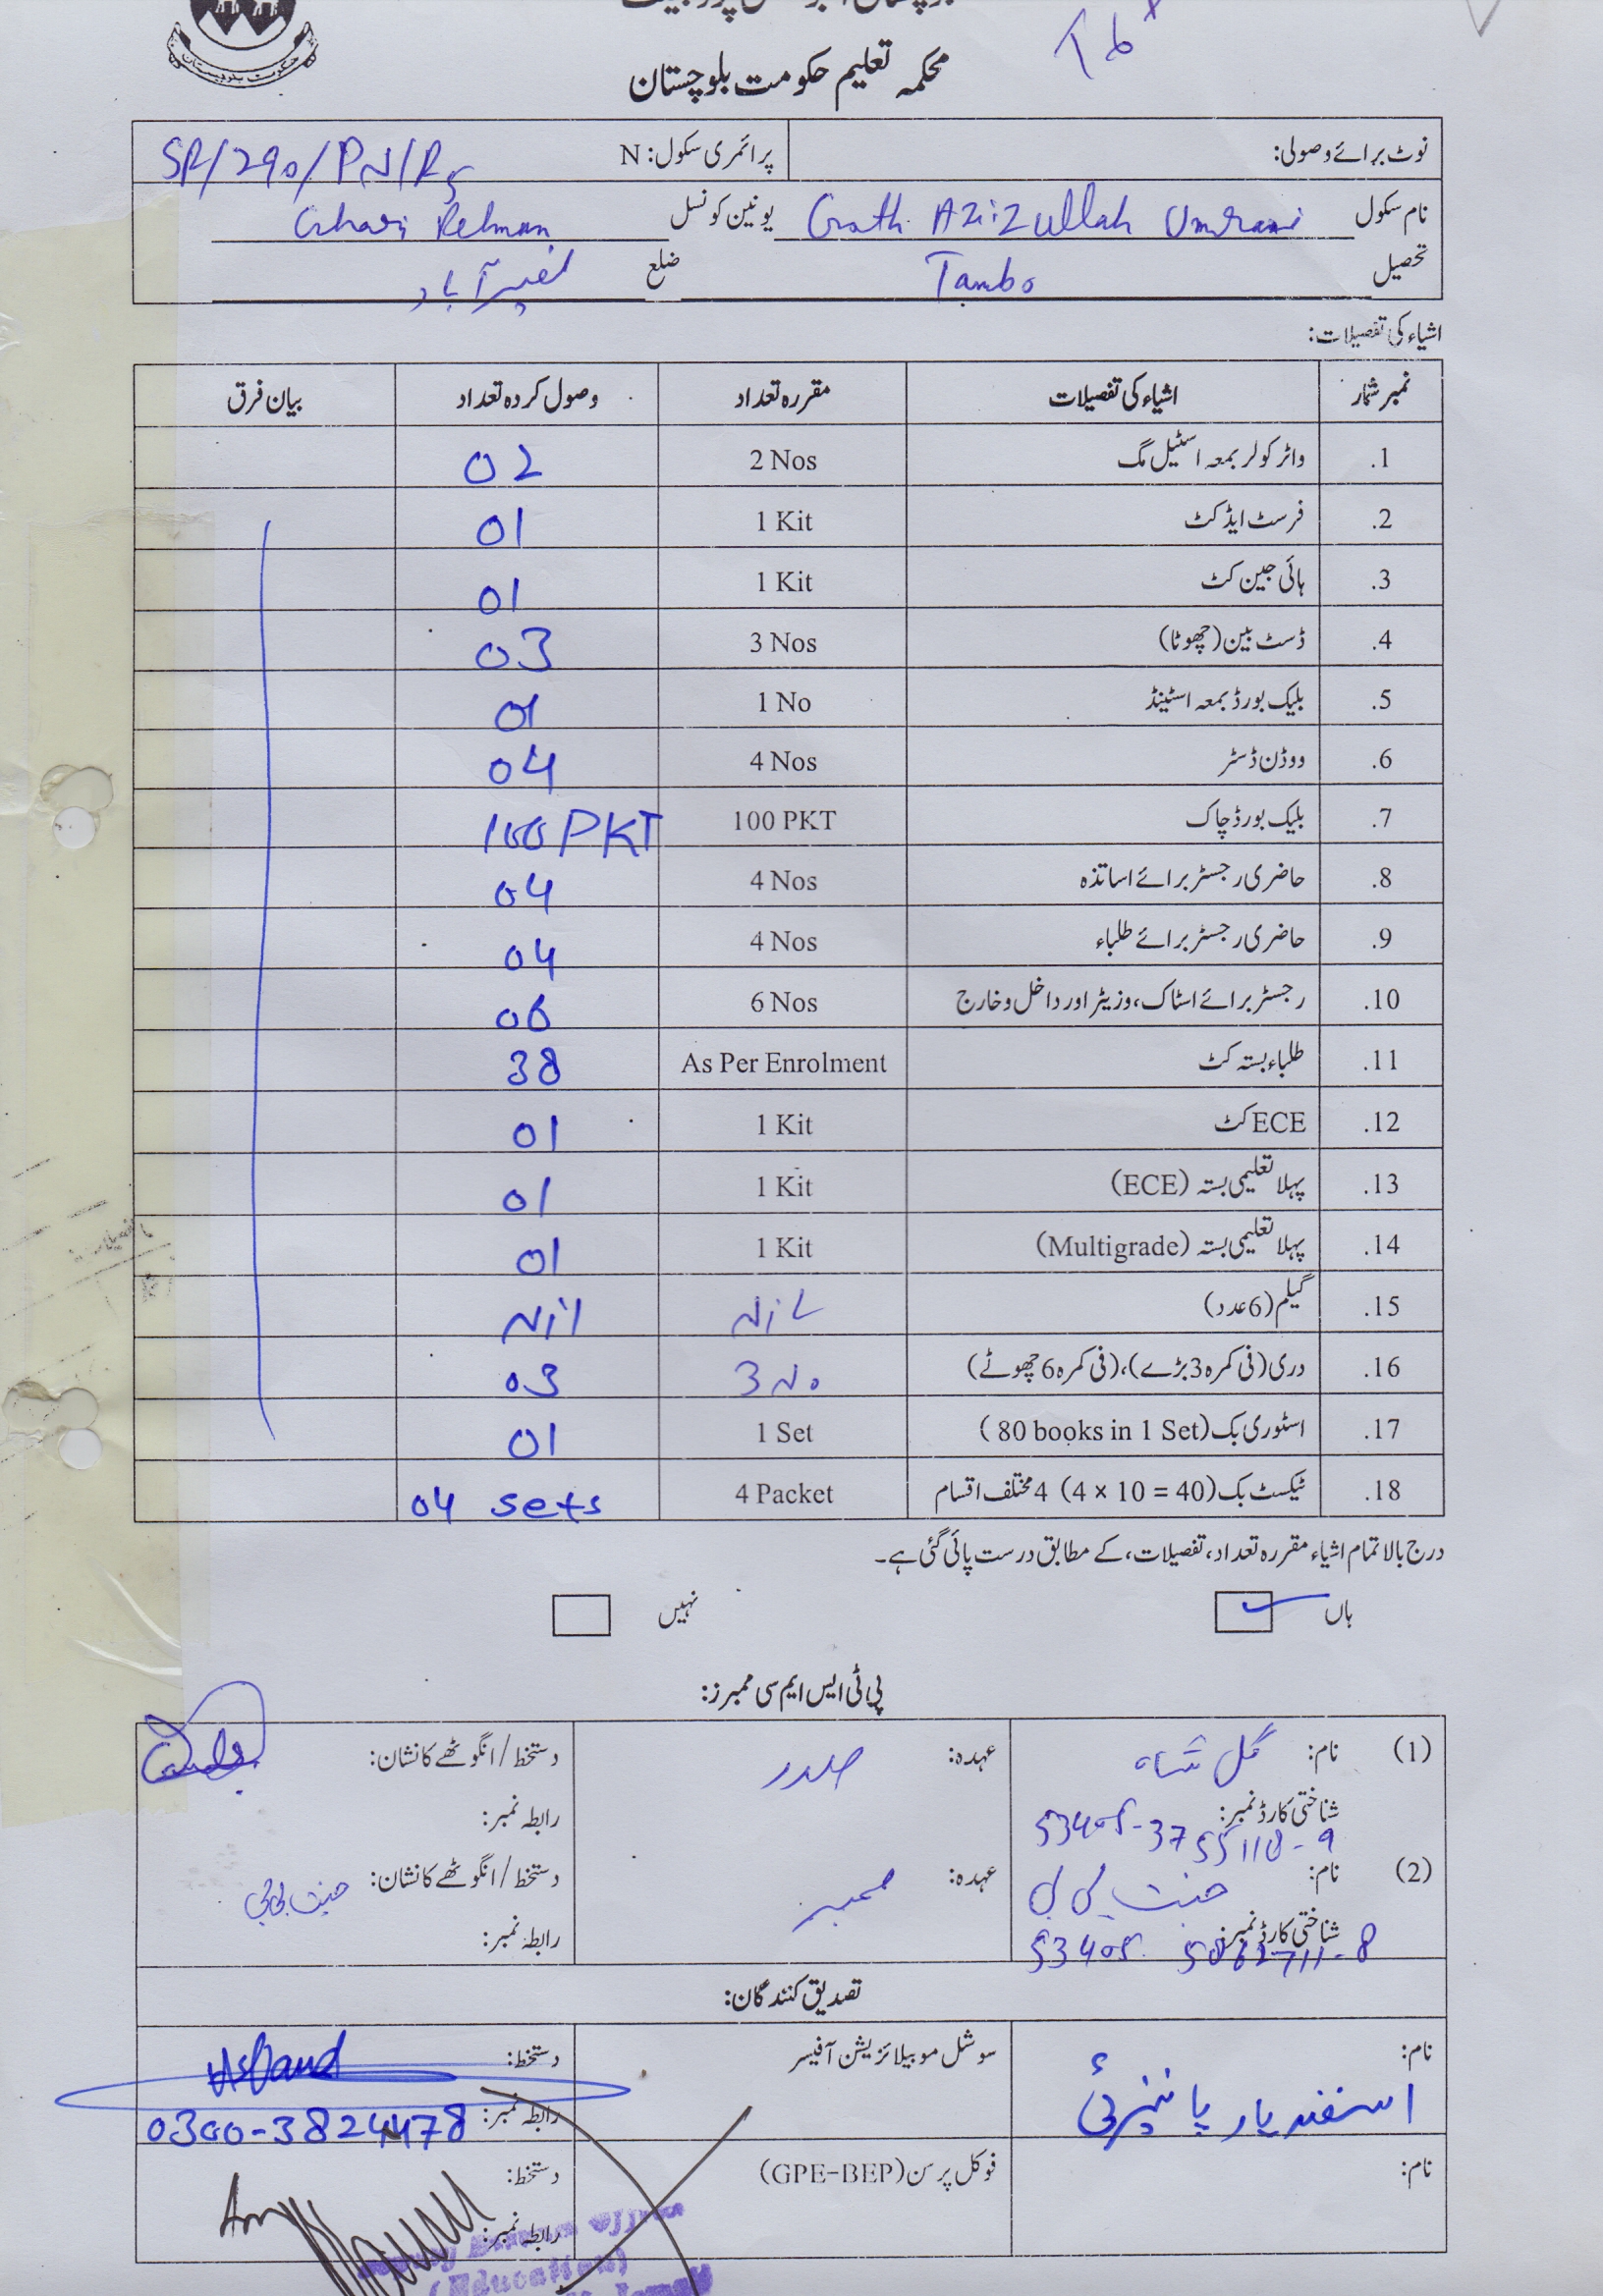 محکمہ تعلیم حکومت بلوچستان
نوٹ برائے وصولی: پرائمری سکول: N SR/290/PN/RS
نام سکول Goth Azizullah Umrani یونین کونسل Rehman
تحصیل Tambo ضلع نصیر آباد
اشیاء کی تفصیلات:
نمبر شمار اشیاء کی تفصیلات مقررہ تعداد وصول کردہ تعداد بیان فرق
1. واٹر کولر بمعہ اسٹیل مگ 2 Nos 02
2. فرسٹ ایڈ کٹ 1 Kit 01
3. ہائی جین کٹ 1 Kit 01
4. ڈسٹ بین (چھوٹا) 3 Nos 03
5. بلیک بورڈ بمعہ اسٹینڈ 1 No 01
6. ووڈن ڈسٹر 4 Nos 04
7. بلیک بورڈ چاک 100 PKT 100 PKT
8. حاضری رجسٹر برائے اساتذہ 4 Nos 04
9. حاضری رجسٹر برائے طلباء 4 Nos 04
10. رجسٹر برائے اسٹاک، وزیٹر اور داخل و خارج 6 Nos 06
11. طلباء بستہ کٹ As Per Enrolment 38
12. ECE کٹ 1 Kit 01
13. پہلا تعلیمی بستہ (ECE) 1 Kit 01
14. پہلا تعلیمی بستہ (Multigrade) 1 Kit 01
15. گیلم (6 عدد) Nil Nil
16. دری (فی کمرہ 3 بڑے)، (فی کمرہ 6 چھوٹے) 3 No 03
17. اسٹوری بک (80 books in 1 Set) 1 Set 01
18. ٹیکسٹ بک (4 × 10 = 40) 4 مختلف اقسام 4 Packet 04 sets
درج بالا تمام اشیاء مقررہ تعداد، تفصیلات، کے مطابق درست پائی گئی ہے۔
ہاں نہیں
پی ٹی ایس ایم سی ممبرز:
(1) نام: گل شاہ عہدہ: صدر دستخط/انگوٹھے کا نشان:
شناختی کارڈ نمبر: 53405-3755118-9 رابطہ نمبر:
(2) نام: جنت بی بی عہدہ: ممبر دستخط/انگوٹھے کا نشان: جنت بی بی
شناختی کارڈ نمبر: 53405 رابطہ نمبر:
تصدیق کنندگان:
نام: اسفندیار سوشل موبیلائزیشن آفیسر دستخط:
رابطہ نمبر: 0300-3824478
نام: فوکل پرسن (GPE-BEP) دستخط:
رابطہ نمبر:
(Education)